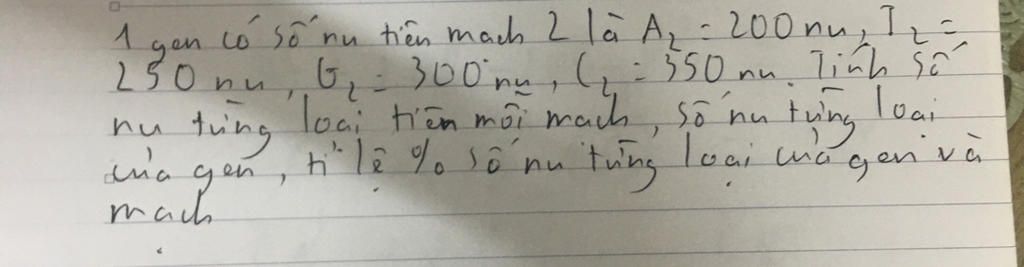 1 gen có số nu trên mạch 2 là A2 = 200 nu, T2 =
250 nu, G2 = 300 nu, C2 = 350 nu. Tính số
nu từng loại trên mỗi mạch, số nu từng loại
của gen, tỉ lệ % số nu từng loại của gen và
mạch